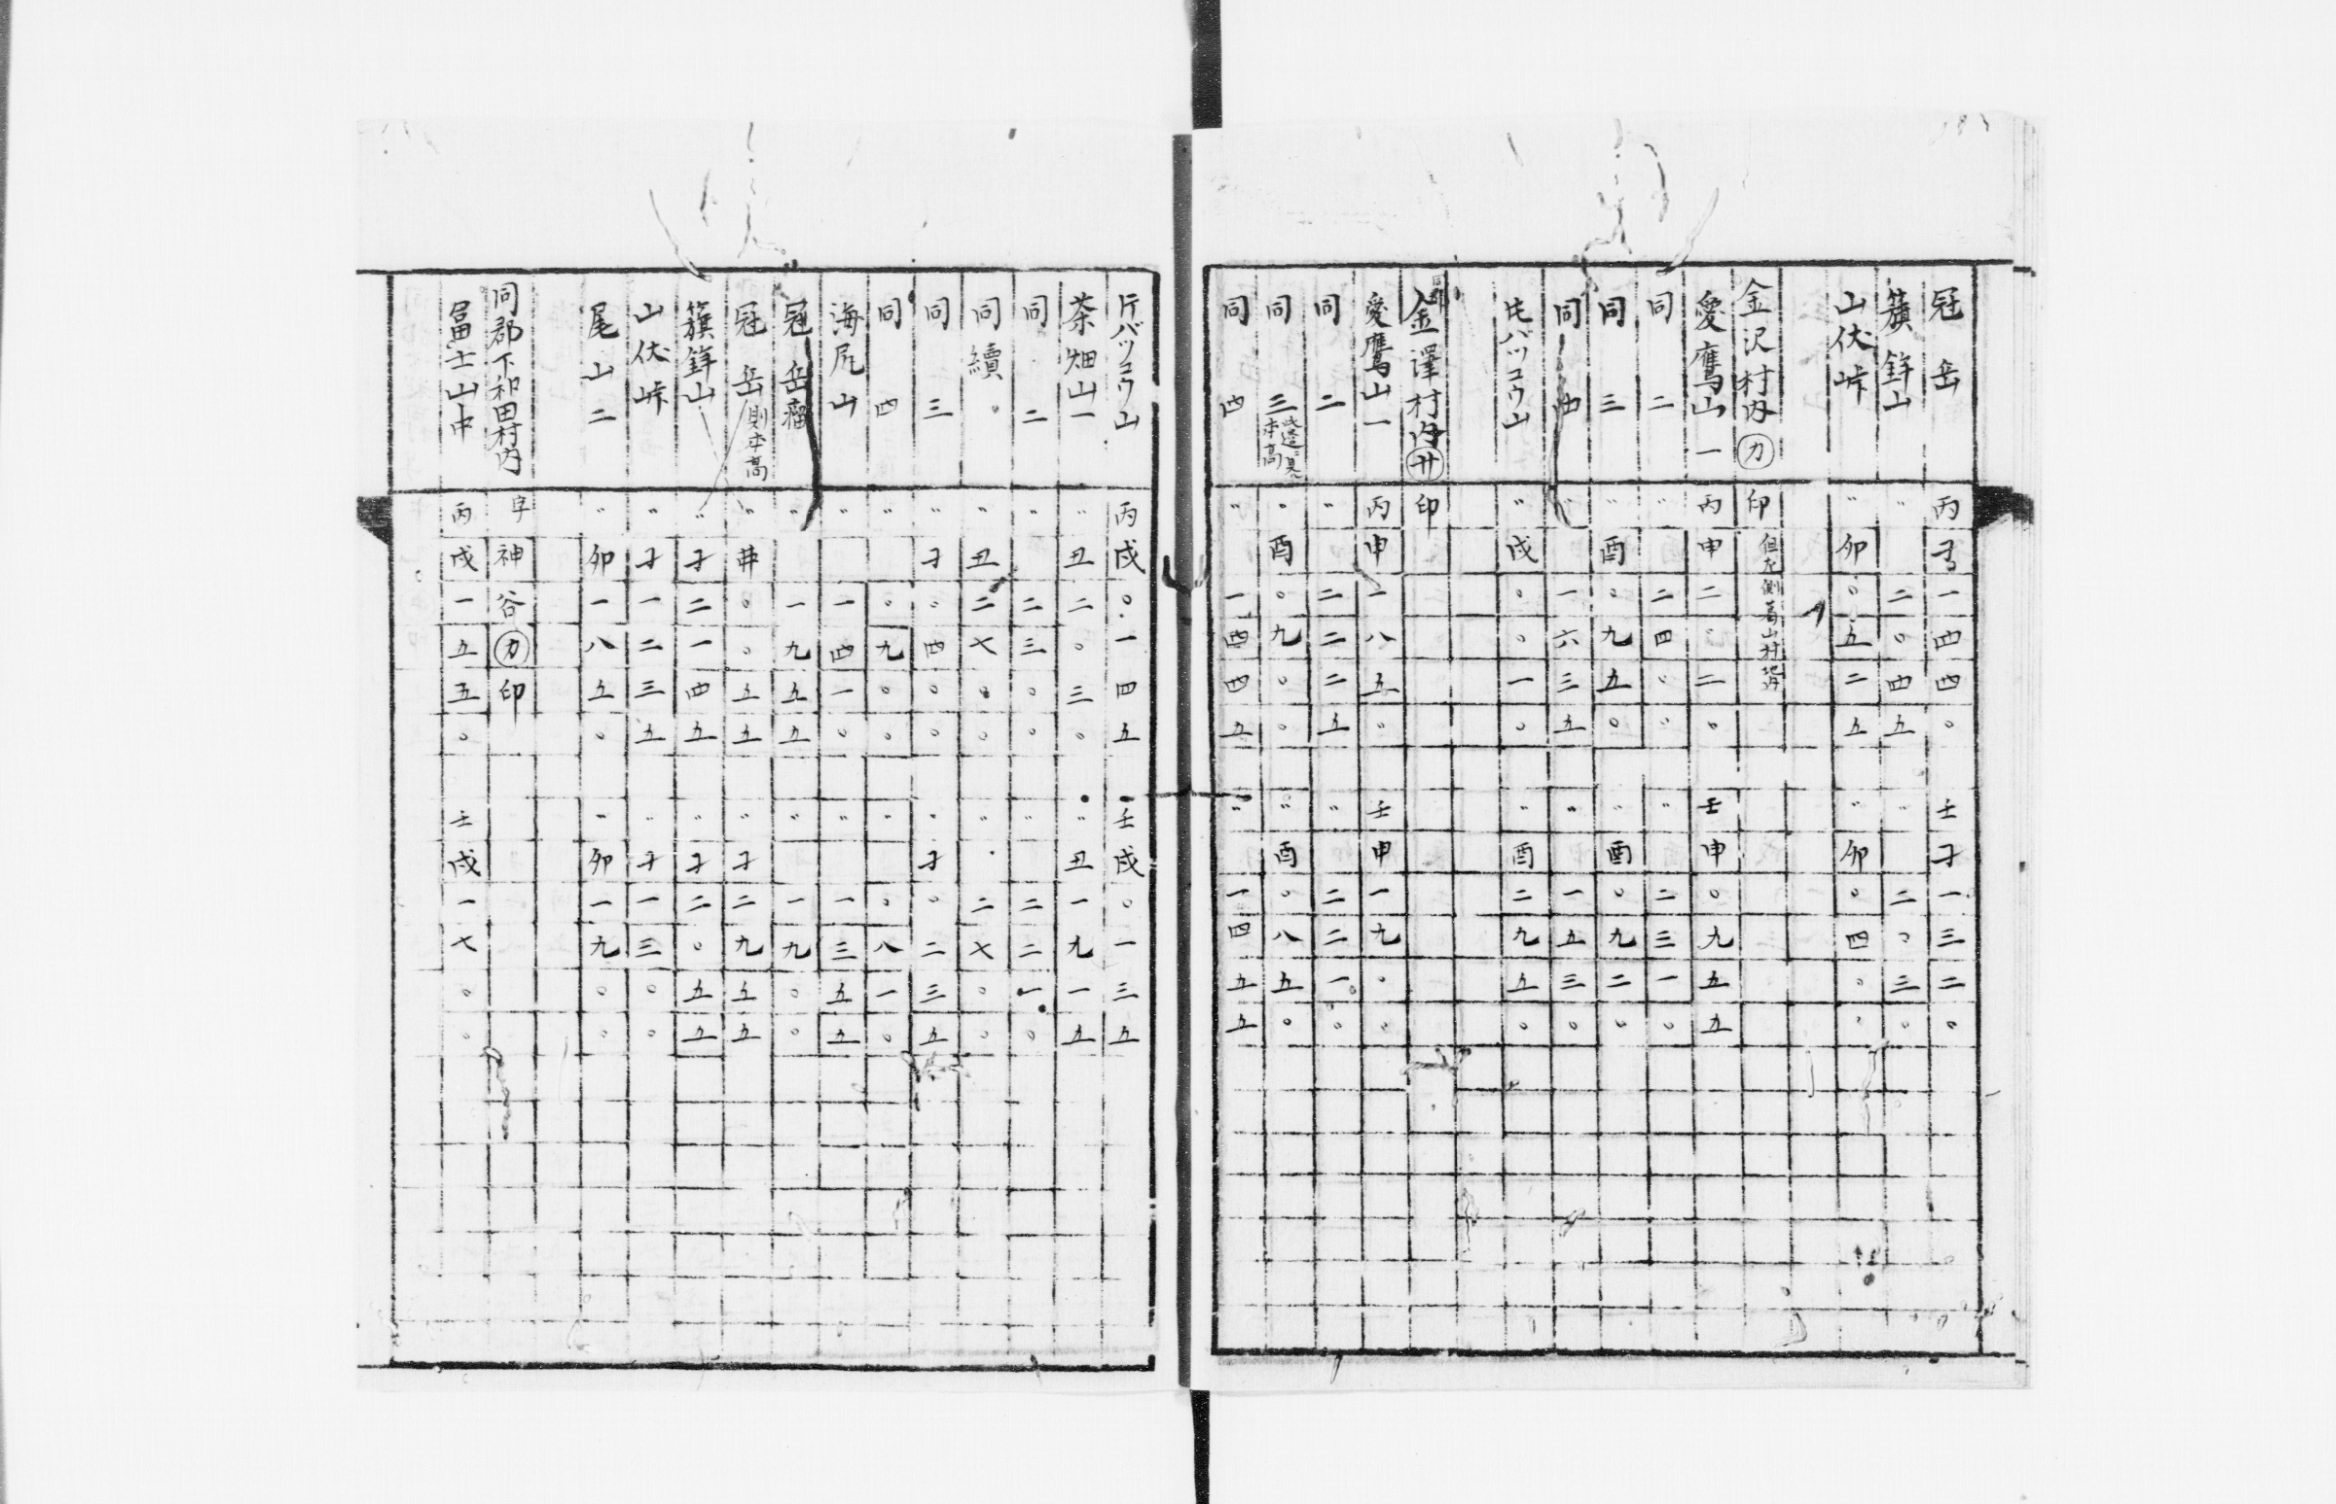 冠岳 丙子一四四〇 壬子一三二〇
籏鉾山 〃 二〇四五 〃 二〇三〇
山伏峠 〃卯〇五二五 〃卯〇四〇〇
金沢村内㋕印 但左側葛山村
愛鷹山一 丙申二〇二〇 壬申〇九五五
同二 〃 二四〇〇 〃 二三一〇
同三 〃酉〇九五〇 〃酉〇九二〇
同四 〃 一六三五 〃 一五三〇
片バツコウ山 〃戌〇〇一〇 〃酉二九五〇
金澤村内㋚印
愛鷹山一 丙申一八五〇 壬申一九〇〇
同二 〃 二二二五 〃 二二一〇
同三 本高 〃酉〇九〇〇 〃酉〇八五〇
同四 〃 一四四五 〃 一四五五
片バツコウ山 丙戌〇一四五 壬戌〇一三五
茶畑山一 〃丑二〇三〇 〃丑一九一五
同二 〃 二三〇〇 〃 二二一〇
同續 〃丑二七〇〇 〃 二七〇〇
同三 〃子〇四〇〇 〃子〇二三五
同四 〃 〇九〇〇 〃 〇八一〇
海尻山 〃 一四一〇 〃 一三五五
冠岳瘤 〃 一九五五 〃 一九〇〇
冠岳 則本高 〃丑〇〇五五 〃子二九五五
籏鉾山 〃子二一四五 〃子二〇五五
山伏峠 〃子一二三五 〃子一三〇〇
尾山二 〃卯一八五〇 〃卯一九〇〇
同郡下和田村内 字神谷㋕印
冨士山中 丙戌一五五〇 壬戌一七〇〇